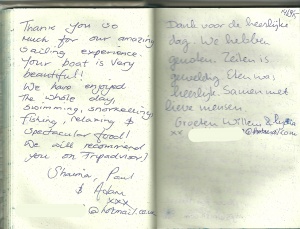 Thank you so
much for our amazing
sailing experience.
Your boat is very
beautiful!
We have enjoyed
the whole day,
swimming, snorkelling
fishing, relaxing &
spectacular food!
We will recommend
you on Tripadvisor!
Paul
& Adam
xxx
@hotmail.com
Dank voor de heerlijke
dag. We hebben
genoten. Zeilen is
geweldig. Eten was
heerlijk. Samen met
lieve mensen.
Groeten Willem &
xx @hotmail.com